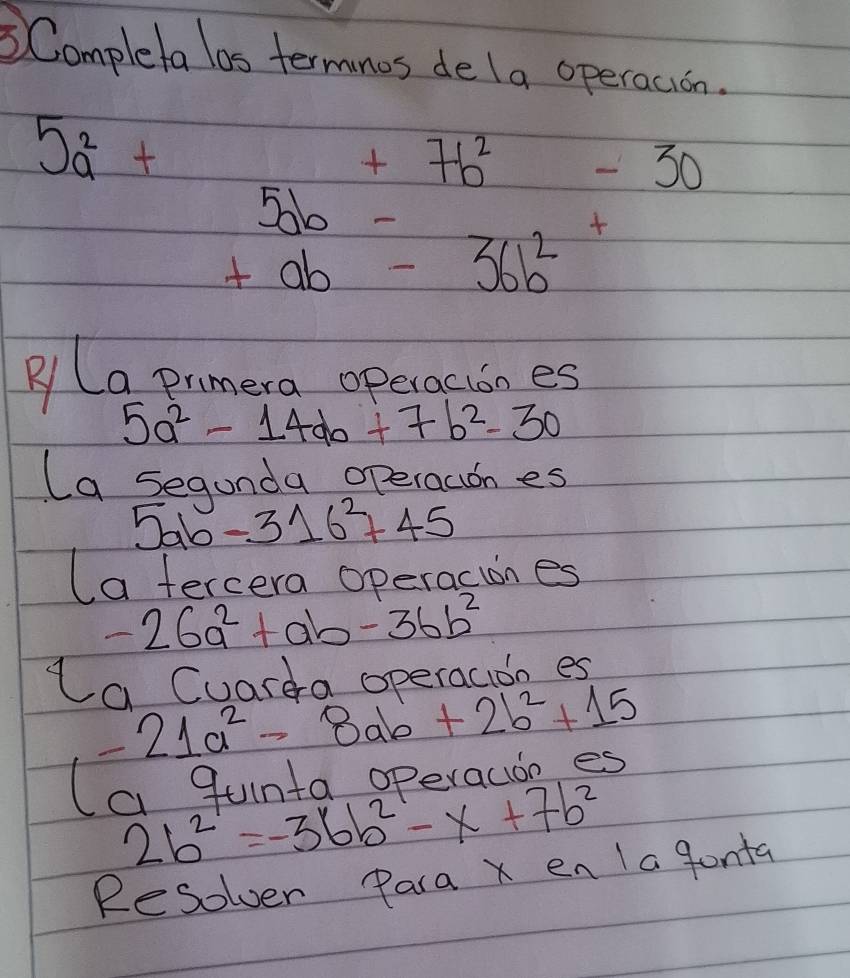 3) Completa los terminos de la operación.
5a² + + 7b² - 30
5ab - +
+ ab - 36b²
R/ La primera operación es
5a² - 14ab + 7b² - 30
La segunda operación es
5ab - 31b² + 45
La tercera operación es
- 26a² + ab - 36b²
La Cuarta operación es
- 21a² - 8ab + 2b² + 15
La quinta operación es
2b² = -36b² - x + 7b²
Resolver Para x en la qonta